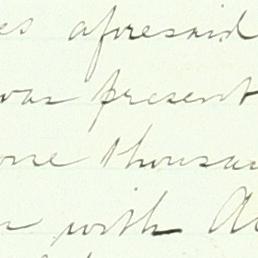 es aforesaid
was present
one thousan
with